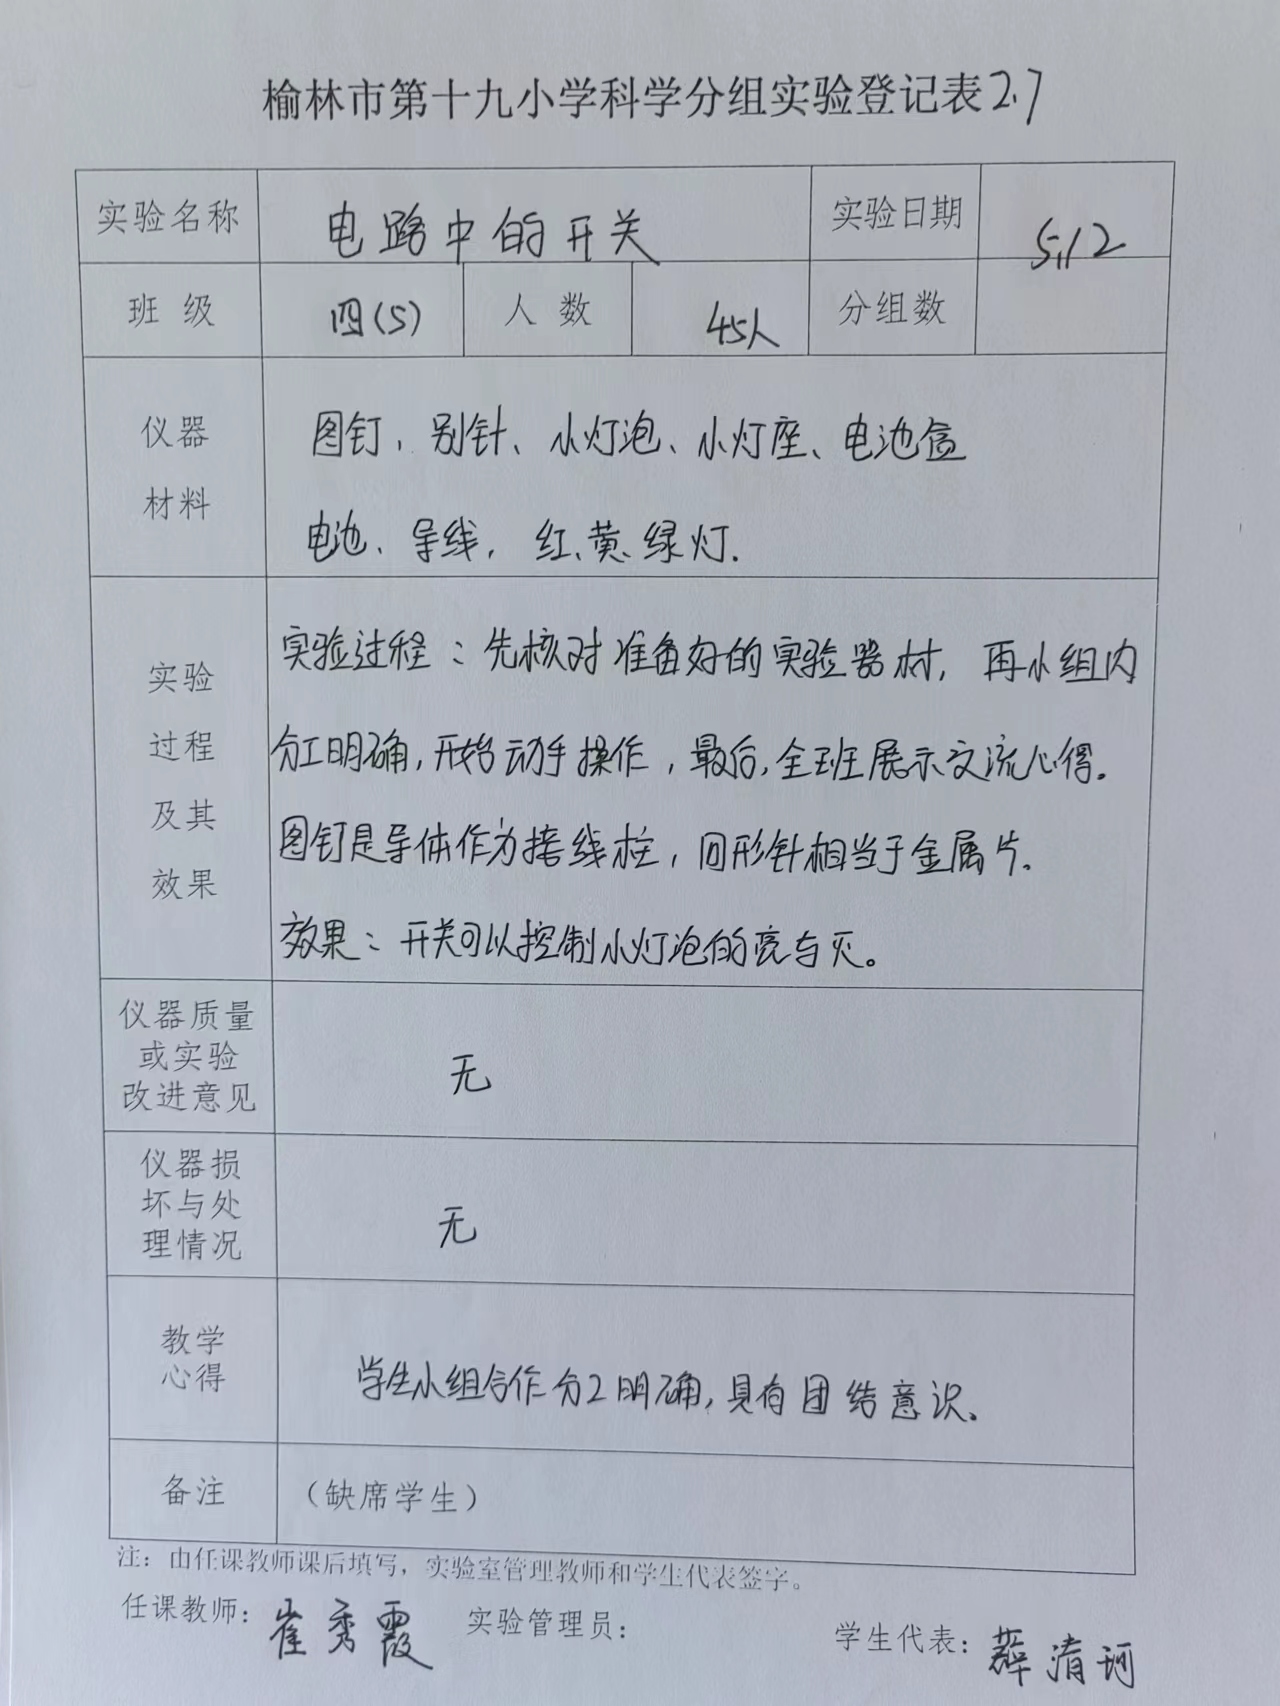 榆林市第十九小学科学分组实验登记表2.7
实验名称 电路中的开关 实验日期 5.12
班 级 四(5) 人 数 45人 分组数
仪器
材料
图钉、别针、小灯泡、小灯座、电池盒
电池、导线, 红、黄、绿灯.
实验
过程
及其
效果
实验过程：先核对准备好的实验器材, 再小组内
分工明确, 开始动手操作, 最后, 全班展示交流心得.
图钉是导体作为接线柱, 回形针相当于金属片.
效果：开关可以控制小灯泡的亮与灭。
仪器质量
或实验
改进意见
无
仪器损
坏与处
理情况
无
教学
心得
学生小组合作分工明确, 具有团结意识.
备注 （缺席学生）
注：由任课教师课后填写，实验室管理教师和学生代表签字。
任课教师：崔秀霞 实验管理员： 学生代表：薛清珂